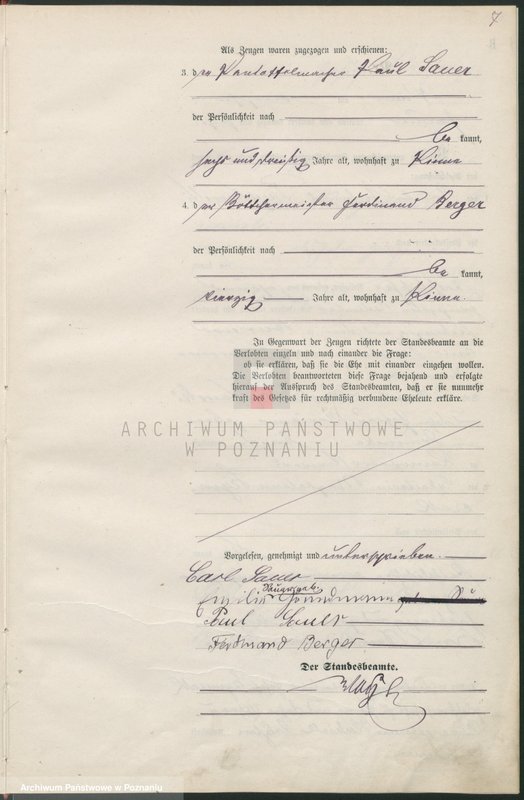 7
Als Zeugen waren zugezogen und erschienen:
3. der Pantoffelmacher Paul Sauer
der Persönlichkeit nach
be kannt,
sechs und dreißig Jahre alt, wohnhaft zu Kinne
4. der Böttchermeister Ferdinand Berger
der Persönlichkeit nach
be kannt,
vierzig Jahre alt, wohnhaft zu Kinne.
In Gegenwart der Zeugen richtete der Standesbeamte an die
Verlobten einzeln und nach einander die Frage:
ob sie erklären, daß sie die Ehe mit einander eingehen wollen.
Die Verlobten beantworteten diese Frage bejahend und erfolgte
hierauf der Ausspruch des Standesbeamten, daß er sie nunmehr
kraft des Gesetzes für rechtmäßig verbundene Eheleute erkläre.
ARCHIWUM PAŃSTWOWE
W POZNANIU
Vorgelesen, genehmigt und unterschrieben.
Carl Sauer
Emilie
Paul Sauer
Ferdinand Berger
Der Standesbeamte.
Archiwum Państwowe w Poznaniu